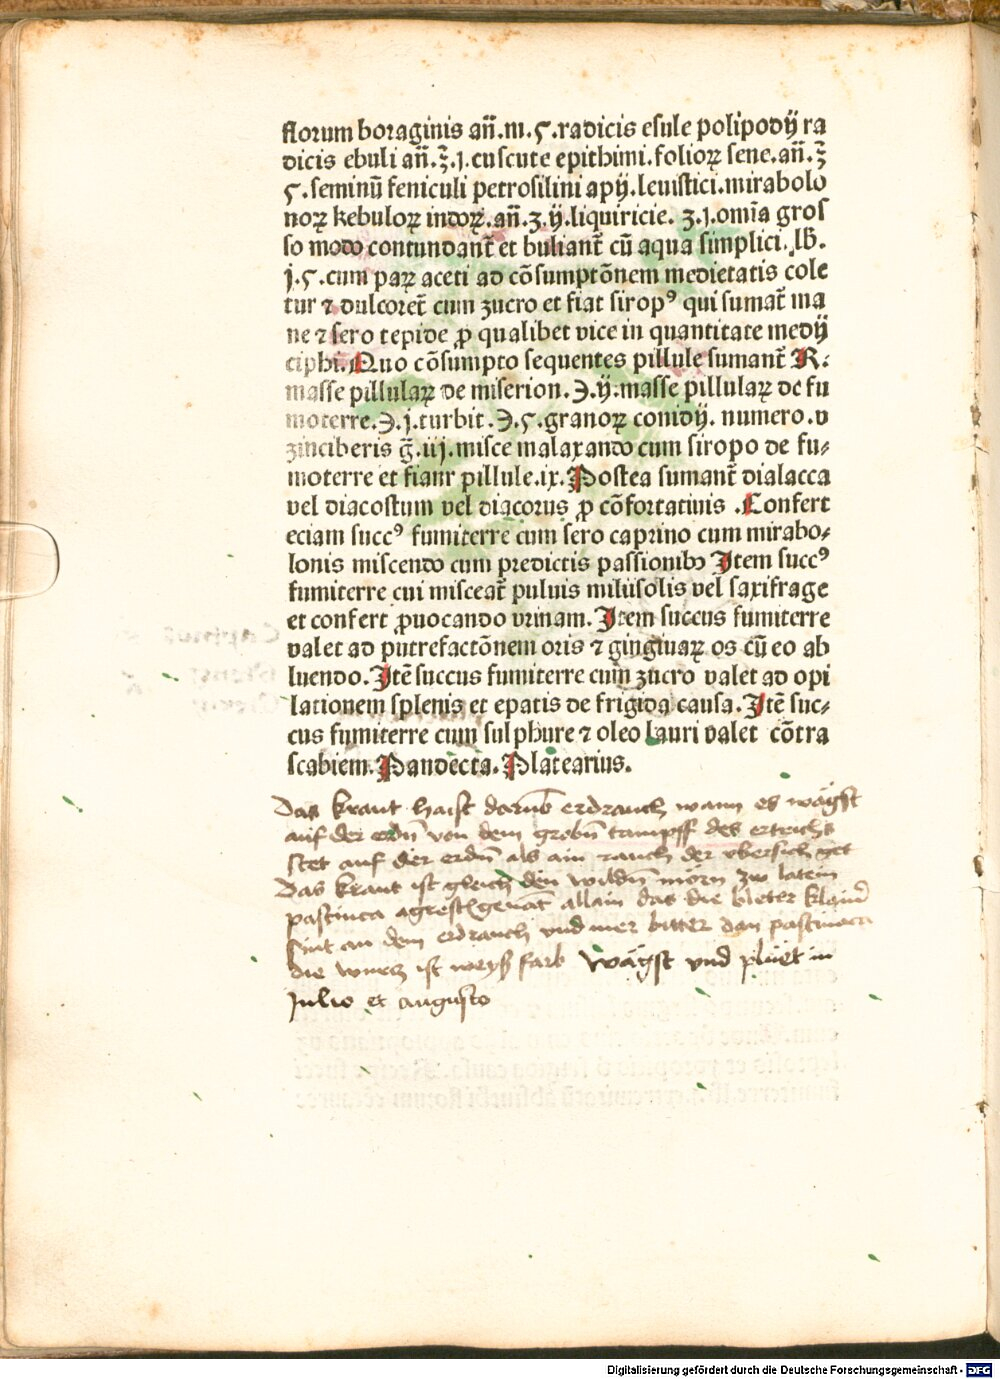 florum boraginis añ.m.ς.radicis esule polipodij ra
dicis ebuli añ.ʒ.j.cuscute epithimi.folioꝝ sene.añ.ʒ
ς.seminū feniculi petrosilini apij.leuistici.mirabolo
noꝝ kebuloꝝ indoꝝ.añ.ʒ.ij.liquiricie. ʒ.j.omīa gros
so modo contundant̄ et buliant̄ cū aqua simplici.lb̄.
j.ς.cum paꝝ aceti ad cōsumptōnem medietatis cole
tur ⁊ dulcoret̄ cum zucro et fiat sirop⁹ qui sumat̄ ma
ne ⁊ sero tepide ꝓ qualibet vice in quantitate medij
ciphi.Quo cōsumpto sequentes pillule sumant̄ R.
masse pillulaꝝ de miserion.℈.ij.masse pillulaꝝ de fu
moterre.℈.j.turbit.℈.ς.granoꝝ conidij. numero.v
zinciberis g̃.iij.misce malaxando cum siropo de fu⸗
moterre et fianr pillule.ix.Postea sumant̄ dialacca
vel diacostum vel diacorus ꝓ cōfortatiuis .Confert
eciam succ⁹ fumiterre cum sero caprino cum mirabo⸗
lonis miscendo cum predictis passionibꝫ Item succ⁹
fumiterre cui misceat̄ puluis milijsolis vel saxifrage
et confert ꝓuocando vrinam.Item succus fumiterre
valet ad putrefactōnem oris ⁊ gingiuaꝝ os cū eo ab
luendo.Itē succus fumiterre cum zucro valet ad opi
lationem splenis et epatis de frigida causa.Itē suc⸗
cus fumiterre cum sulphure ⁊ oleo lauri valet cōtra
scabiem.Pandecta.Platearius.
Das kraut haist darūb erdrauch wann es wägst
auf der erdñ von dem grobñ tampff des ertrichs
stet auf der erdñ als ain rauch der vbersich get
Das kraut ist gleich den wildñ morn zw latein
pastinca agrest genāt allain das die bleter klain
sint an dem erdrauch vnd mer bitter dan pastinaca
die wurcz ist weyß farb Wägst vnd plüet in
Julio et augusto
Digitalisierung gefördert durch die Deutsche Forschungsgemeinschaft - DFG